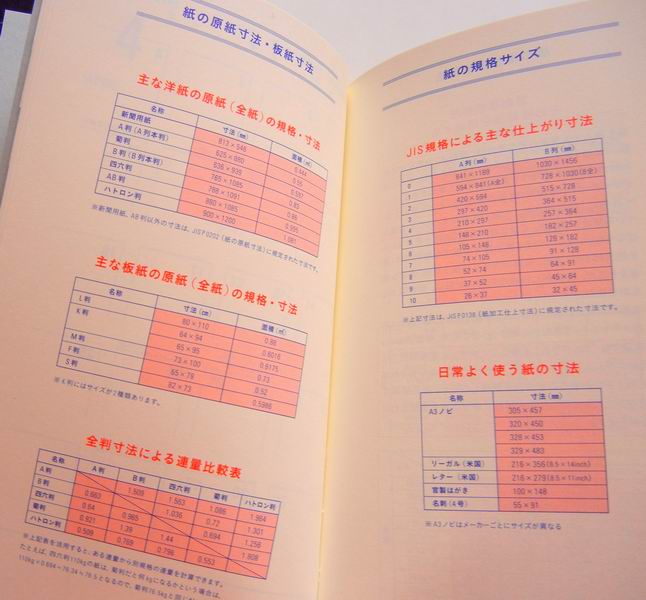 紙の原紙寸法・板紙寸法
主な洋紙の原紙(全紙)の規格・寸法
名称 寸法(㎜) 面積(㎡)
新聞用紙 813×546 0.444
A判(A列本判) 625×880 0.55
菊判 636×939 0.597
B判(B列本判) 765×1085 0.83
四六判 788×1091 0.86
AB判 880×1085 0.955
ハトロン判 900×1200 1.081
※新聞用紙、AB判以外の寸法は、JIS P 0202(紙の原紙寸法)に規定された寸法です。
主な板紙の原紙(全紙)の規格・寸法
名称 寸法(㎝) 面積(㎡)
L判 80×110 0.88
K判 64×94 0.6016
65×95 0.6175
M判 73×100 0.73
F判 65×78 0.52
S判 82×73 0.5986
※K判にはサイズが2種類あります。
全判寸法による連量比較表
名称 A判 B判 四六判 菊判 ハトロン判
A判 1.509 1.563 1.086 1.964
B判 0.663 1.036 0.72 1.301
四六判 0.64 0.694 1.256
菊判 0.921 1.39 1.44 1.808
ハトロン判 0.509 0.769 0.796 0.553
※上記表を活用すると、ある連量から別規格の連量を計算できます。
たとえば、四六判110kgの紙は、菊判だと何kgになるかという場合は、
110kg×0.694=76.34≒76.5となるので、菊判76.5kgと同じ
紙の規格サイズ
JIS規格による主な仕上がり寸法
A列(㎜) B列(㎜)
0 841×1189 1030×1456
1 594×841(A全) 728×1030(B全)
2 420×594 515×728
3 297×420 364×515
4 210×297 257×364
5 148×210 182×257
6 105×148 128×182
7 74×105 91×128
8 52×74 64×91
9 37×52 45×64
10 26×37 32×45
※上記寸法は、JIS P 0138(紙加工仕上寸法)に規定された寸法です。
日常よく使う紙の寸法
名称 寸法(㎜)
A3ノビ 305×457
320×450
328×453
329×483
リーガル(米国) 216×356(8.5×14inch)
レター(米国) 216×279(8.5×11inch)
官製はがき 100×148
名刺(4号) 55×91
※A3ノビはメーカーごとにサイズが異なる